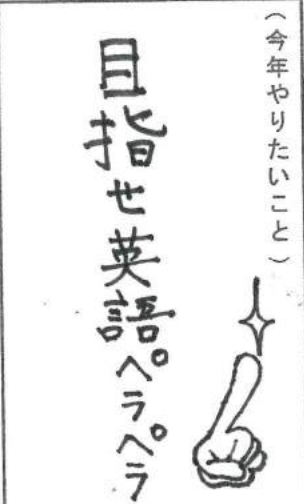 （今年やりたいこと）
目指せ英語ペラペラ